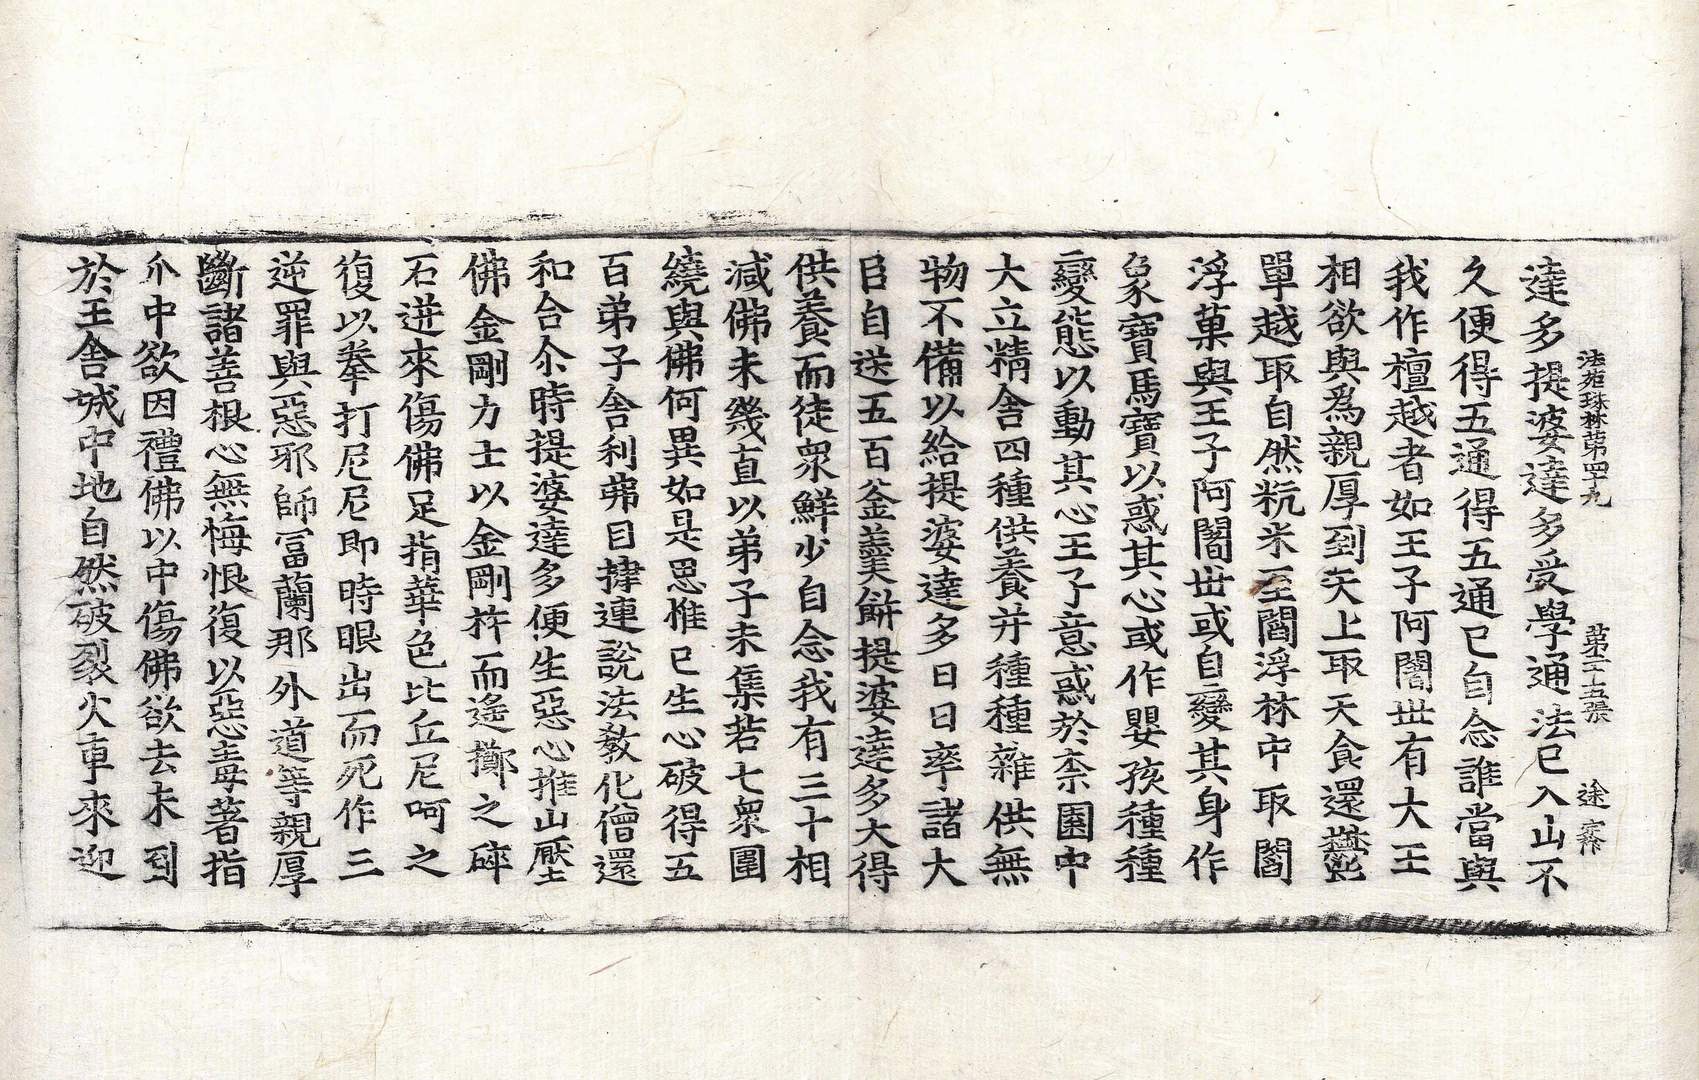 法苑珠林第四十九 第二十五張 途寮
達多提婆達多受學通法已入山不
久便得五通得五通已自念誰當與
我作檀越者如王子阿闍世有大王
相欲與爲親厚到天上取天食還欝
單越取自然粳米至閻浮林中取閻
浮菓與王子阿闍世或自變其身作
象寶馬寶以惑其心或作嬰孩種種
變態以動其心王子意惑於柰園中
大立精舍四種供養并種種雜供無
物不備以給提婆達多日日率諸大
臣自送五百釜羹餅提婆達多大得
供養而徒衆鮮少自念我有三十相
減佛未幾直以弟子未集若七衆圍
繞與佛何異如是思惟已生心破得五
百弟子舍利弗目揵連說法教化僧還
和合尒時提婆達多便生惡心推山壓
佛金剛力士以金剛杵而遙擲之碎
石迸來傷佛足指華色比丘尼呵之
復以拳打尼尼即時眼出而死作三
逆罪與惡邪師冨蘭那外道等親厚
斷諸善根心無悔恨復以惡毒著指
爪中欲因禮佛以中傷佛欲去未到
於王舍城中地自然破裂火車來迎